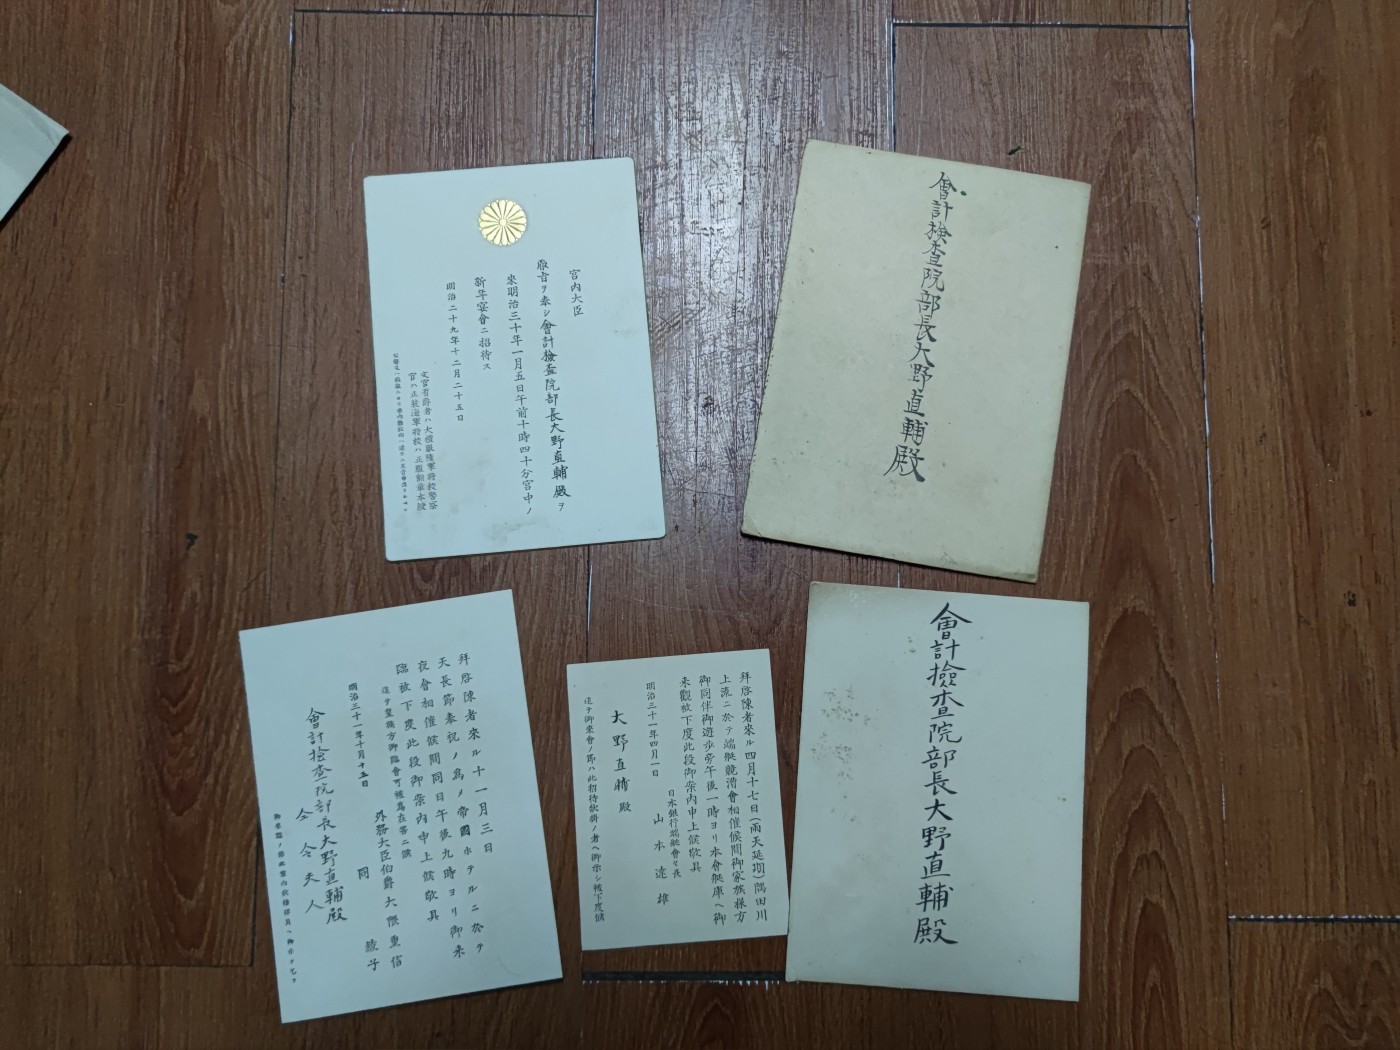 宮内大臣
敕旨ヲ奉シ會計檢査院部長大野直輔殿ヲ
來明治三十年一月五日午前十時四十分宮中ノ
新年宴會ニ招待ス
明治二十九年十二月二十五日
文官有爵者ハ大禮服陸軍將校警察
官ハ正裝海軍將校ハ正服勳章本綬
會計検査院部長大野直輔殿
拜啓陳者來ル十一月三日
天長節奉祝ノ爲メ帝國ホテルニ於テ
夜會相催候間同日午後九時ヨリ御來
臨被下度此段御案内申上候敬具
追テ皇族方御臨會可被爲在筈ニ候
明治三十一年十月十五日
外務大臣伯爵大隈重信
同 綾子
會計検査院部長大野直輔殿
仝令夫人
拜啓陳者來ル四月十七日(雨天延期)隅田川
上流ニ於テ端艇競漕會相催候間御家族様方
御同伴御遊歩旁午後一時ヨリ本會艇庫ヘ御
來觀被下度此段御案内申上候敬具
明治三十一年四月一日
日本銀行端艇會々長
山本達雄
大野直輔殿
追テ御來會ノ節ハ此招待狀掛ノ者ヘ御示シ被下度候
會計檢査院部長大野直輔殿